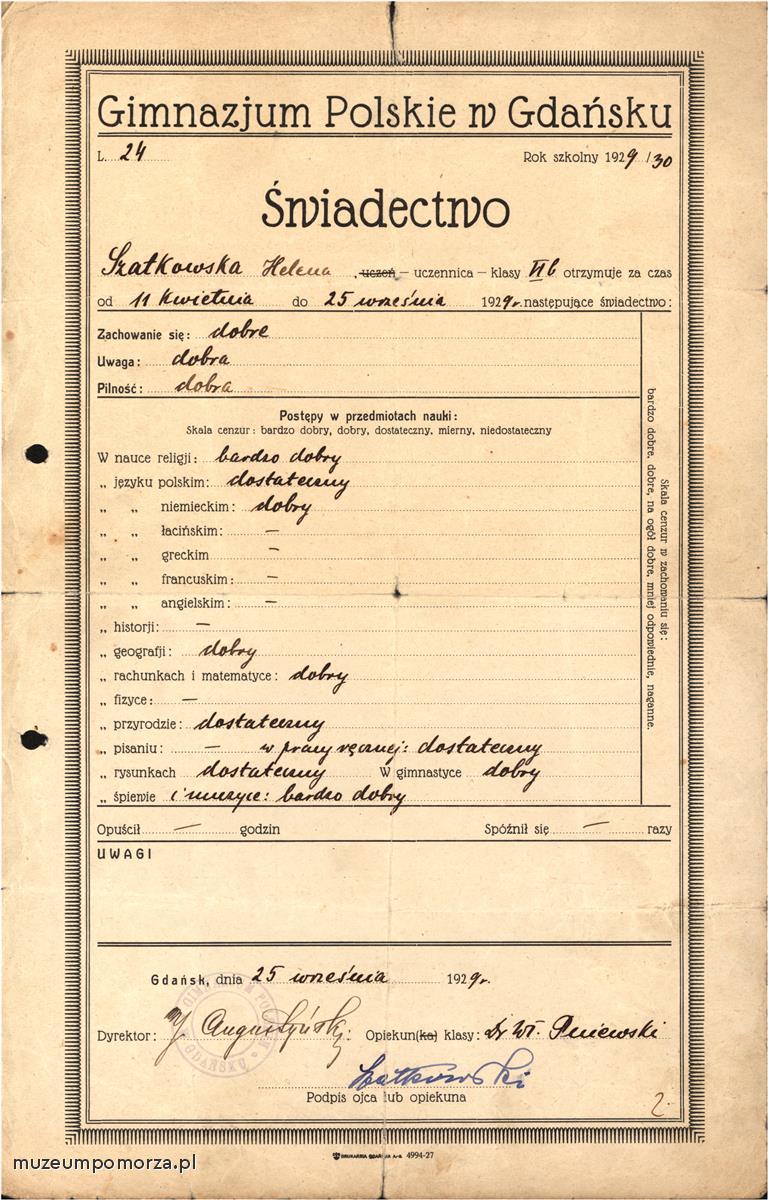 Gimnazjum Polskie w Gdańsku
L. 24 Rok szkolny 1929/30
Świadectwo
Szatkowska Helena, uczeń – uczennica – klasy VIb otrzymuje za czas
od 11 kwietnia do 25 września 1929 r. następujące świadectwo:
Zachowanie się: dobre
Uwaga: dobra
Pilność: dobra
Postępy w przedmiotach nauki:
Skala cenzur: bardzo dobry, dobry, dostateczny, mierny, niedostateczny
W nauce religji: bardzo dobry
„ języku polskim: dostateczny
„ „ niemieckim: dobry
„ „ łacińskim: —
„ „ greckim —
„ „ francuskim: —
„ „ angielskim: —
„ historji: —
„ geografji: dobry
„ rachunkach i matematyce: dobry
„ fizyce: —
„ przyrodzie: dostateczny
„ pisaniu: — w pracy ręcznej: dostateczny
„ rysunkach dostateczny W gimnastyce dobry
„ śpiewie i muzyce: bardzo dobry
Skala cenzur w zachowaniu się:
bardzo dobre, dobre, na ogół dobre, mniej odpowiednie, naganne.
Opuścił — godzin Spóźnił się — razy
UWAGI
Gdańsk, dnia 25 września 1929 r.
Dyrektor: J Augustyński Opiekun(ka) klasy: Dr Wł. Pniewski
Szatkowski
Podpis ojca lub opiekuna
2.
DRUKARNIA GDAŃSKA A.-G. 4994-27
muzeumpomorza.pl